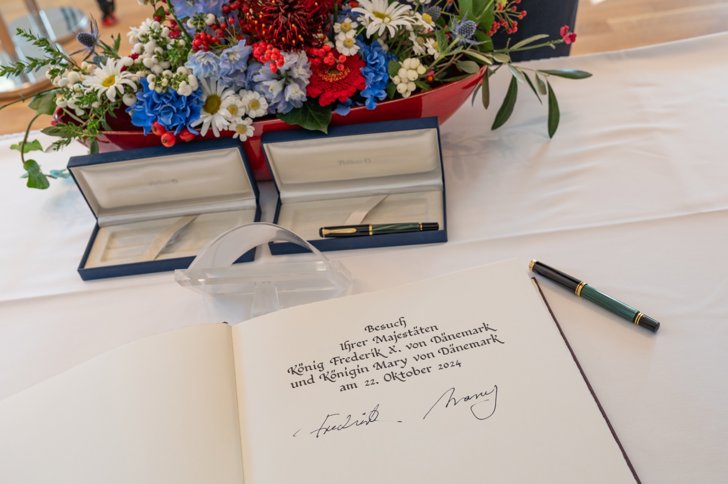 Pelikan
Besuch
Ihrer Majestäten
König Frederik X. von Dänemark
und Königin Mary von Dänemark
am 22. Oktober 2024
Frederik
Mary